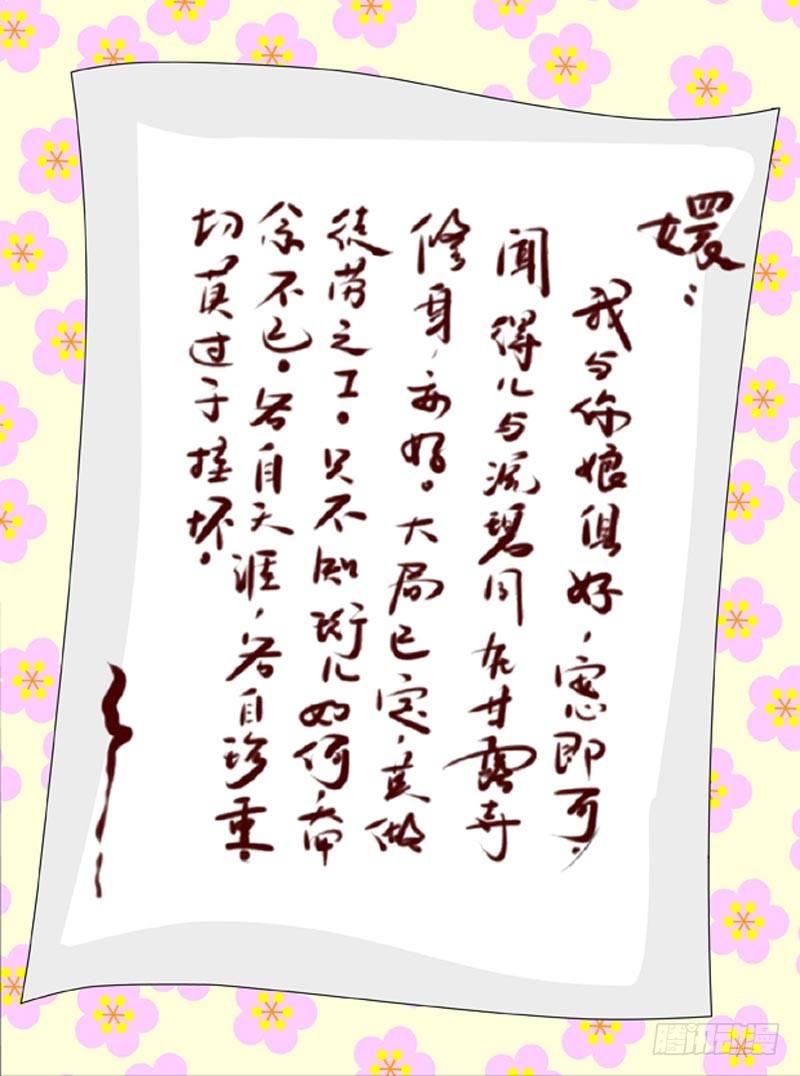 嬛：
我与你娘俱好，宽心即可。
闻得儿与流珠同在甘露寺
修身，亦好。大局已定，莫做
徒劳之工。只不知珩儿如何，牵
念不已。各自天涯，各自珍重。
切莫过于挂怀。
腾讯动漫